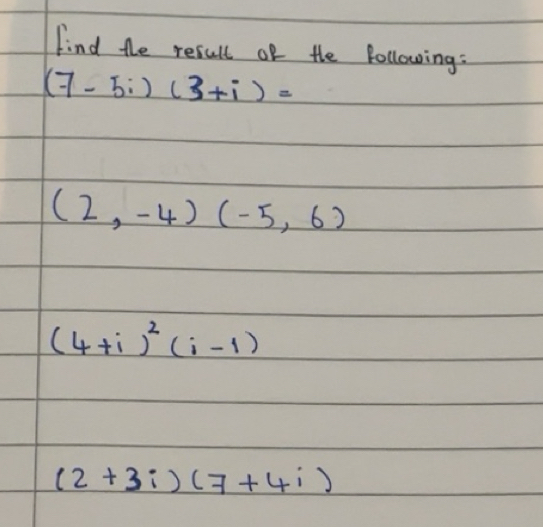 find the result of the following:
(7 - 5i) (3+i) =
(2, -4) (-5, 6)
(4+i)² (i-1)
(2+3i)(7+4i)